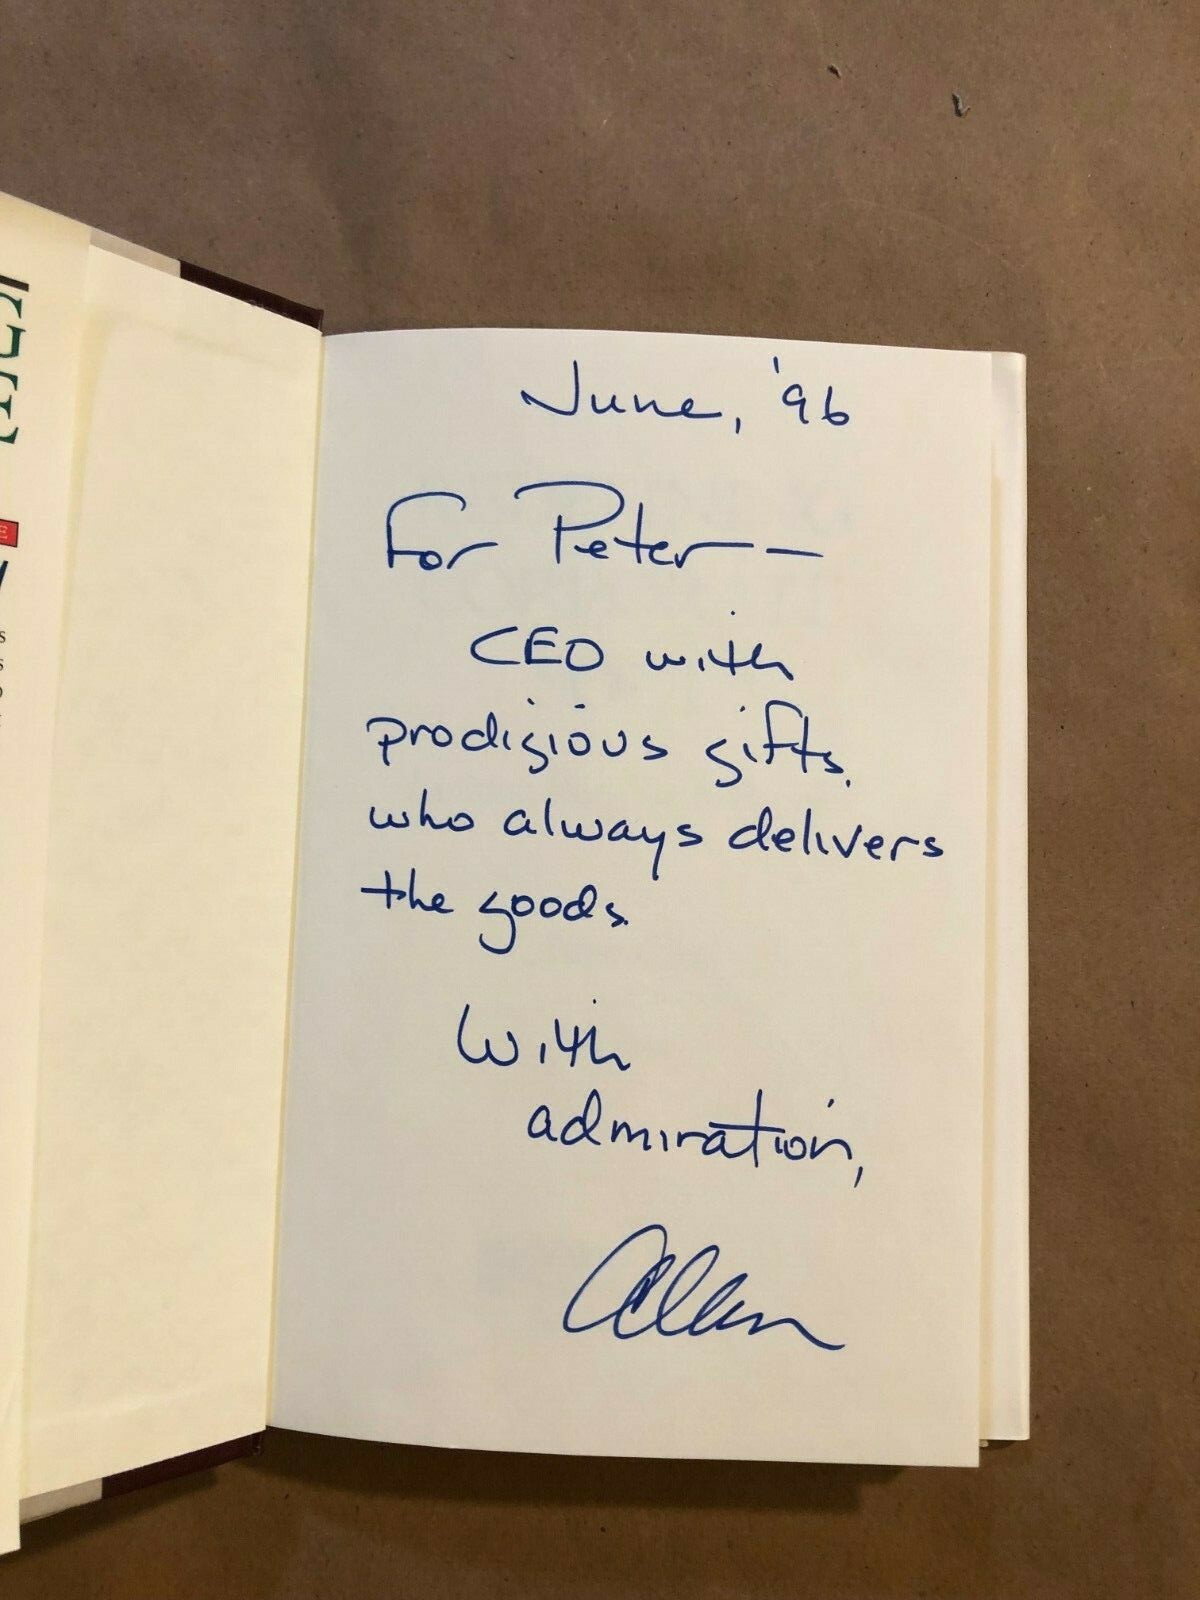 June, '96
For Peter—
CEO with
prodigious gifts,
who always delivers
the goods.
With
admiration,
Allan